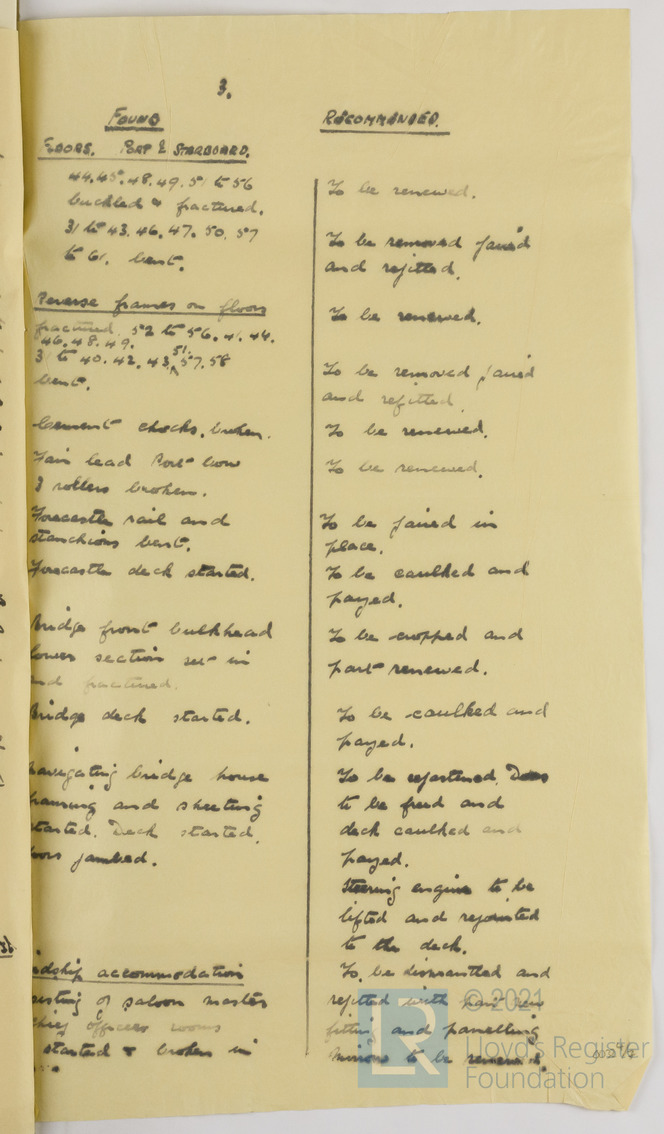 3.
FOUND
RECOMMENDED.
FLOORS. PORT & STARBOARD.
44. 45. 48. 49. 51 to 56
To be renewed.
buckled & fractured.
31 to 43. 46. 47. 50. 57
To be removed faired
to 61. bent.
and refitted.
Reverse frames on floors
To be renewed.
fractured. 52 to 56. 41. 44.
46. 48. 49.
31 to 40. 42. 43. 51. 57. 58
To be removed faired
bent.
and refitted.
Cement chocks. broken.
To be renewed.
Fair lead Port bow
To be renewed.
3 rollers broken.
Forecastle rail and
To be faired in
stanchions bent.
place.
Forecastle deck started.
To be caulked and
payed.
Bridge front bulkhead
To be cropped and
lower section set in
part renewed.
and fractured.
Bridge deck started.
To be caulked and
payed.
navigating bridge house
To be refastened. Doors
framing and sheeting
to be freed and
started. Deck started.
deck caulked and
doors jambed.
payed.
Steering engine to be
lifted and rejointed
to the deck.
idship accommodation
To be dismantled and
sisting of saloon master
refitted with part new
chief officers rooms
fitting and panelling
started & broken in
mirrors to be renewed.
© 2021
Lloyd's Register
Foundation